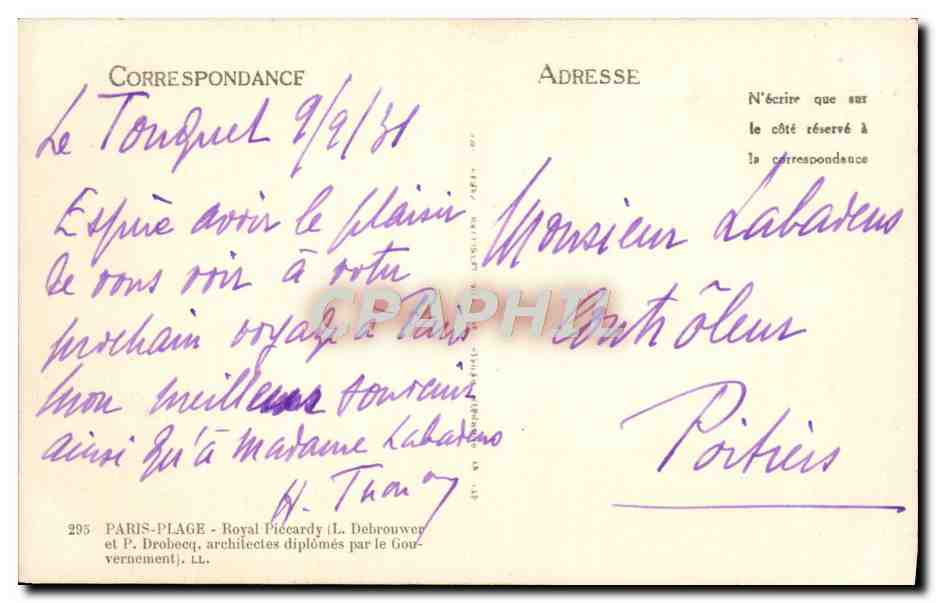 CORRESPONDANCE
Le Touquet 9/9/31
Espère avoir le plaisir
de vous voir à votre
prochain voyage à Paris
mon meilleur souvenir
ainsi qu'à Madame Labadens
H.
295 PARIS-PLAGE - Royal Piccardy (L. Debrouwer
et P. Drobecq, architectes diplômés par le Gou-
vernement). LL.
ADRESSE
N'écrire que sur
le côté réservé à
la correspondance
Monsieur Labadens
Contrôleur
Poitiers
CPAPHIL